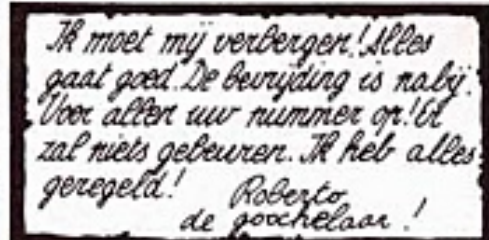 Ik moet mij verbergen! Alles
gaat goed. De bevrijding is nabij.
Voer allen uw nummer op! Er
zal niets gebeuren. Ik heb alles
geregeld!
Roberto
de goochelaar!